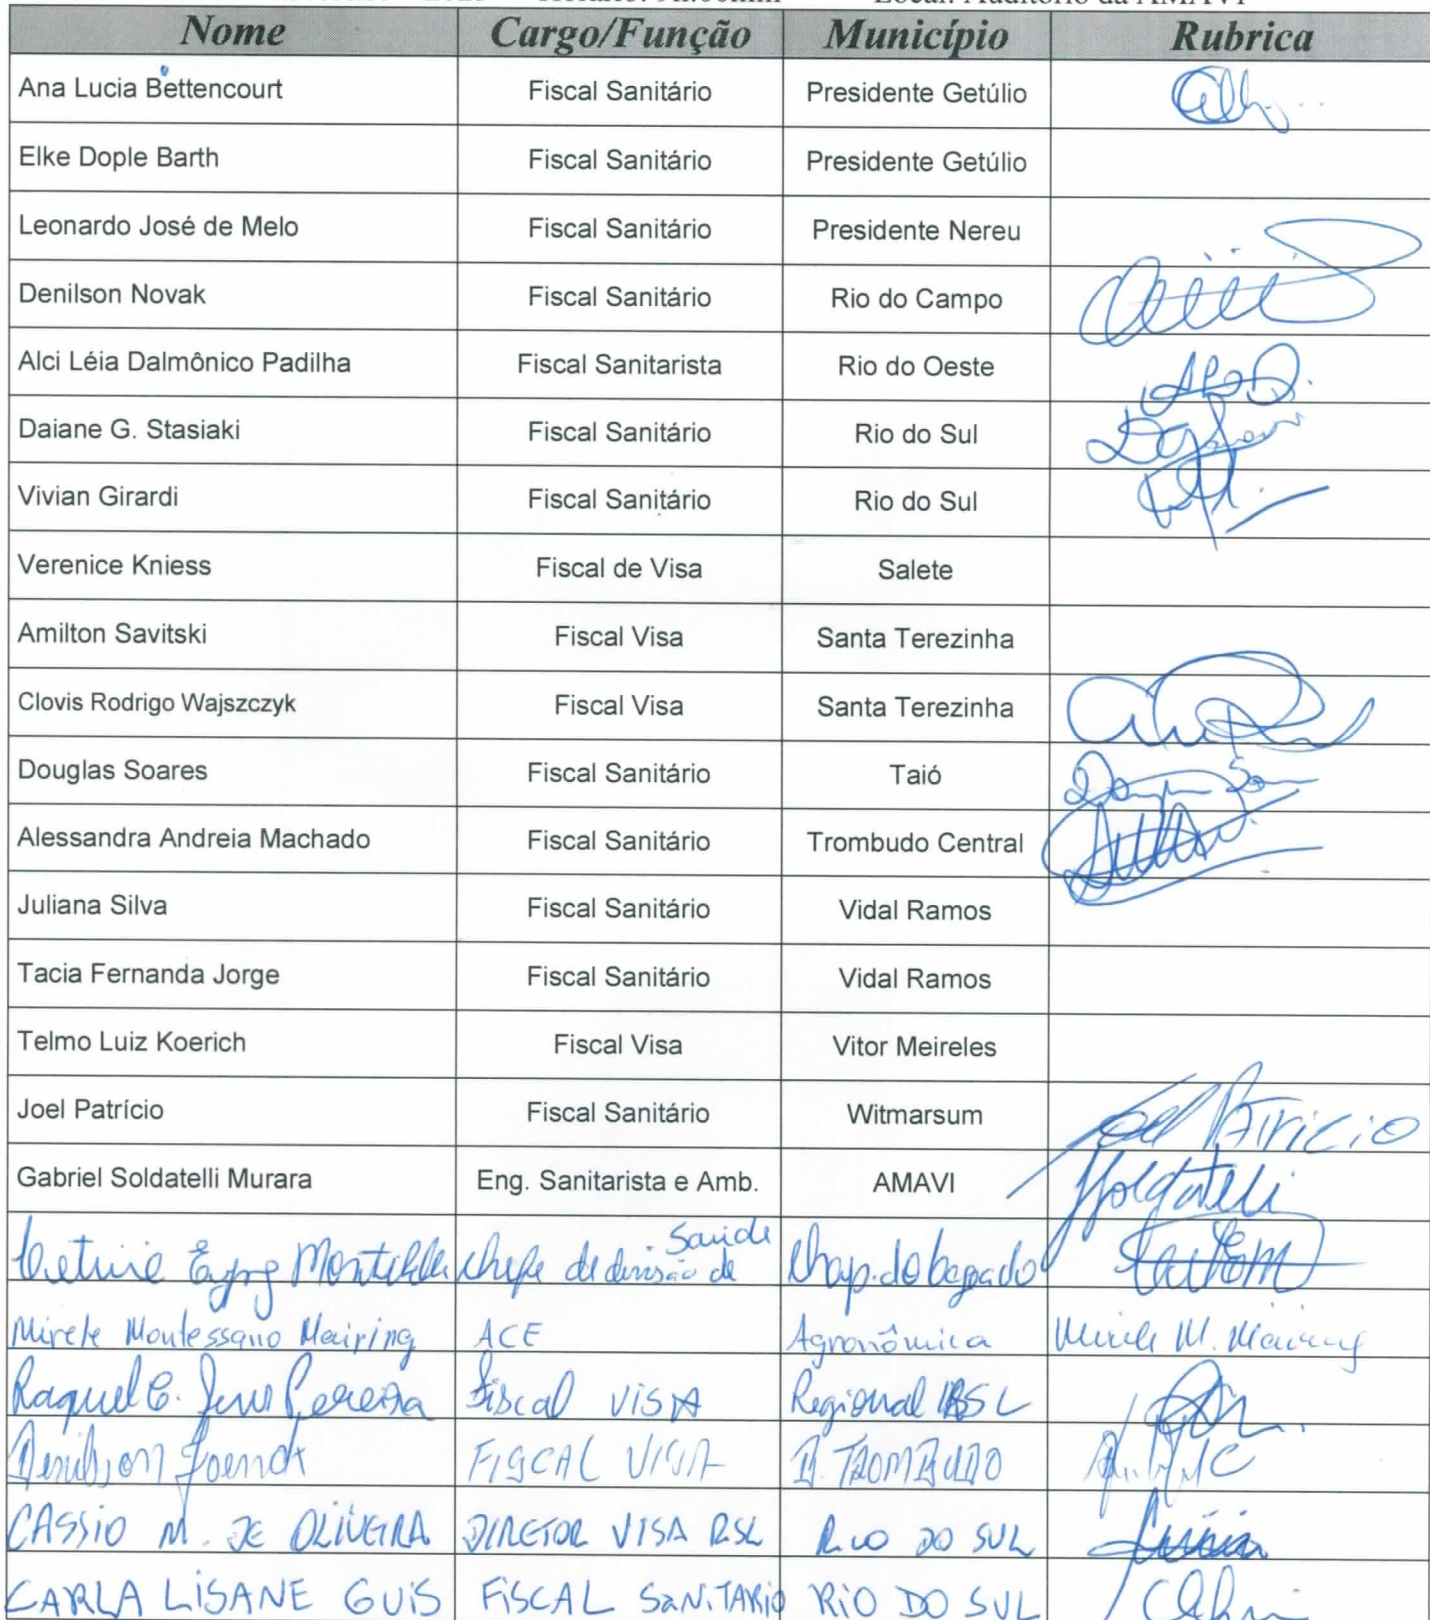 Horário: 9h:00min Local: Auditório da AMAVI
Nome Cargo/Função Município Rubrica
Ana Lucia Bettencourt Fiscal Sanitário Presidente Getúlio
Elke Dople Barth Fiscal Sanitário Presidente Getúlio
Leonardo José de Melo Fiscal Sanitário Presidente Nereu
Denilson Novak Fiscal Sanitário Rio do Campo
Alci Léia Dalmônico Padilha Fiscal Sanitarista Rio do Oeste
Daiane G. Stasiaki Fiscal Sanitário Rio do Sul
Vivian Girardi Fiscal Sanitário Rio do Sul
Verenice Kniess Fiscal de Visa Salete
Amilton Savitski Fiscal Visa Santa Terezinha
Clovis Rodrigo Wajszczyk Fiscal Visa Santa Terezinha
Douglas Soares Fiscal Sanitário Taió
Alessandra Andreia Machado Fiscal Sanitário Trombudo Central
Juliana Silva Fiscal Sanitário Vidal Ramos
Tacia Fernanda Jorge Fiscal Sanitário Vidal Ramos
Telmo Luiz Koerich Fiscal Visa Vitor Meireles
Joel Patrício Fiscal Sanitário Witmarsum Joel Patricio
Gabriel Soldatelli Murara Eng. Sanitarista e Amb. AMAVI Soldatelli
chefe de divisão de Saúde Chap. do
Mirele Montessano Mairing ACE Agronômica Mirele M. Mairing
Raquel Pereira Fiscal VISA Regional
FISCAL VISA B. TROMBUDO
CASSIO M. DE OLIVEIRA DIRETOR VISA RSL RIO DO SUL
CARLA LISANE GUIS FISCAL SANITARIO RIO DO SUL